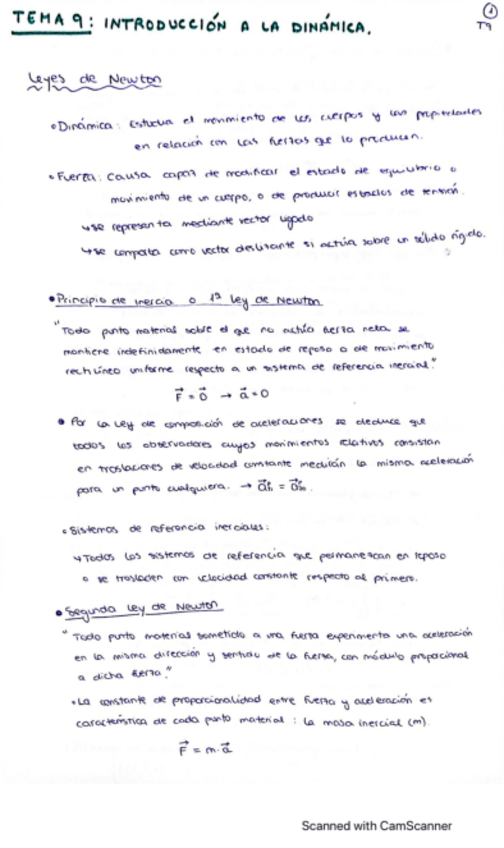 TEMA 9: INTRODUCCIÓN A LA DINÁMICA.
1
T9
Leyes de Newton
• Dinámica: Estudia el movimiento de los cuerpos y sus propiedades
en relación con las fuerzas que lo producen.
• Fuerza: causa capaz de modificar el estado de equilibrio o
movimiento de un cuerpo, o de producir estados de tensión.
↳ se representa mediante vector ligado
↳ se comporta como vector deslizante si actúa sobre un sólido rígido.
• Principio de inercia o 1ª ley de Newton
"Todo punto material sobre el que no actúa fuerza neta se
mantiene indefinidamente en estado de reposo o de movimiento
rectilíneo uniforme respecto a un sistema de referencia inercial."
F⃗ = 0⃗ → a⃗ = 0
• Por la ley de composición de aceleraciones se deduce que
todos los observadores cuyos movimientos relativos consistan
en traslaciones de velocidad constante medirán la misma aceleración
para un punto cualquiera. →
• Sistemas de referencia inerciales:
↳ Todos los sistemas de referencia que permanezcan en reposo
o se trasladen con velocidad constante respecto al primero.
• Segunda ley de Newton
"Todo punto material sometido a una fuerza experimenta una aceleración
en la misma dirección y sentido de la fuerza, con módulo proporcional
a dicha fuerza."
• La constante de proporcionalidad entre fuerza y aceleración es
característica de cada punto material: la masa inercial (m).
F⃗ = m·a⃗
Scanned with CamScanner